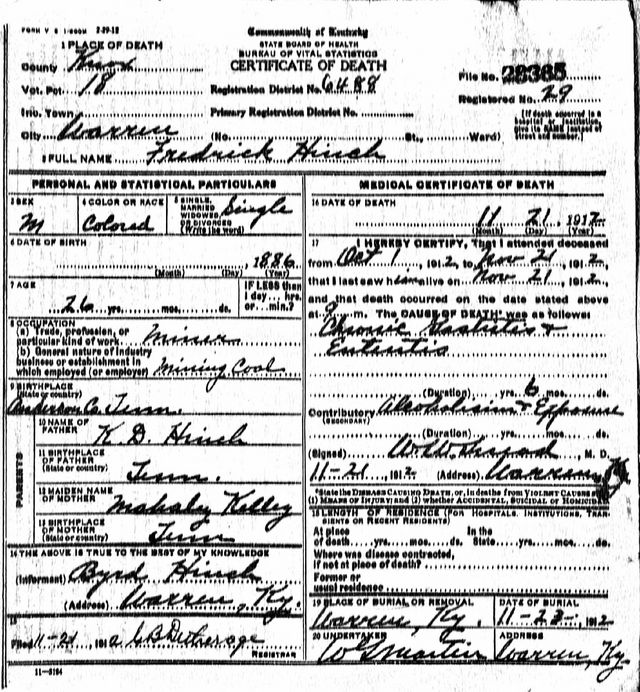 FORM V S 1-500M 2-29-12
Commonwealth of Kentucky
STATE BOARD OF HEALTH
BUREAU OF VITAL STATISTICS
CERTIFICATE OF DEATH
1 PLACE OF DEATH
County Knox
Vot. Pct. 18
Registration District No. 6488
File No. 28385
Inc. Town
Primary Registration District No.
Registered No. 29
City Warren (No. St., Ward)
[If death occurred in a hospital or institution, give its NAME instead of street and number.]
2 FULL NAME Fredrick Hinch
PERSONAL AND STATISTICAL PARTICULARS
3 SEX M
4 COLOR OR RACE Colored
5 SINGLE, MARRIED WIDOWED, OR DIVORCED (Write the word) Single
6 DATE OF BIRTH
1886
(Month) (Day) (Year)
7 AGE
26 yrs. mos. ds.
IF LESS than 1 day... hrs. or...min.?
8 OCCUPATION
(a) Trade, profession, or particular kind of work Miner
(b) General nature of industry business or establishment in which employed (or employer) Mining Coal
9 BIRTHPLACE
(State or country)
Anderson Co. Tenn.
PARENTS
10 NAME OF FATHER K. D. Hinch
11 BIRTHPLACE OF FATHER (State or country) Tenn.
12 MAIDEN NAME OF MOTHER Mahaley Kelley
13 BIRTHPLACE OF MOTHER (State or country) Tenn
14 THE ABOVE IS TRUE TO THE BEST OF MY KNOWLEDGE
(Informant) Byrd Hinch
(Address) Warren, Ky.
15
Filed 11-21 191
REGISTRAR
11-5184
MEDICAL CERTIFICATE OF DEATH
16 DATE OF DEATH
11 21 1912
(Month) (Day) (Year)
17 I HEREBY CERTIFY, That I attended deceased
from Oct 1, 1912, to Nov 21, 1912,
that I last saw him alive on Nov 21, 1912,
and that death occurred on the date stated above
at m. The CAUSE OF DEATH* was as follows:
Chronic Gastritis &
Enteritis
(Duration) yrs. 6 mos. ds.
Contributory Alcoholism & Exposure
(SECONDARY)
(Duration) yrs. mos. ds.
(Signed) M. D.
11-21 1912 (Address) Warren, Ky
*State the DISEASES CAUSING DEATH, or, in deaths from VIOLENT CAUSES
(1) MEANS OF INJURY and (2) whether ACCIDENTAL, SUICIDAL OR HOMICIDAL
18 LENGTH OF RESIDENCE (FOR HOSPITALS, INSTITUTIONS, TRANSIENTS OR RECENT RESIDENTS)
At place of death yrs. mos. ds. In the State yrs. mos. ds.
Where was disease contracted,
if not at place of death?
Former or
usual residence
19 PLACE OF BURIAL OR REMOVAL
Warren, Ky.
DATE OF BURIAL
11-23-1912
20 UNDERTAKER
Martin
ADDRESS
Warren, Ky